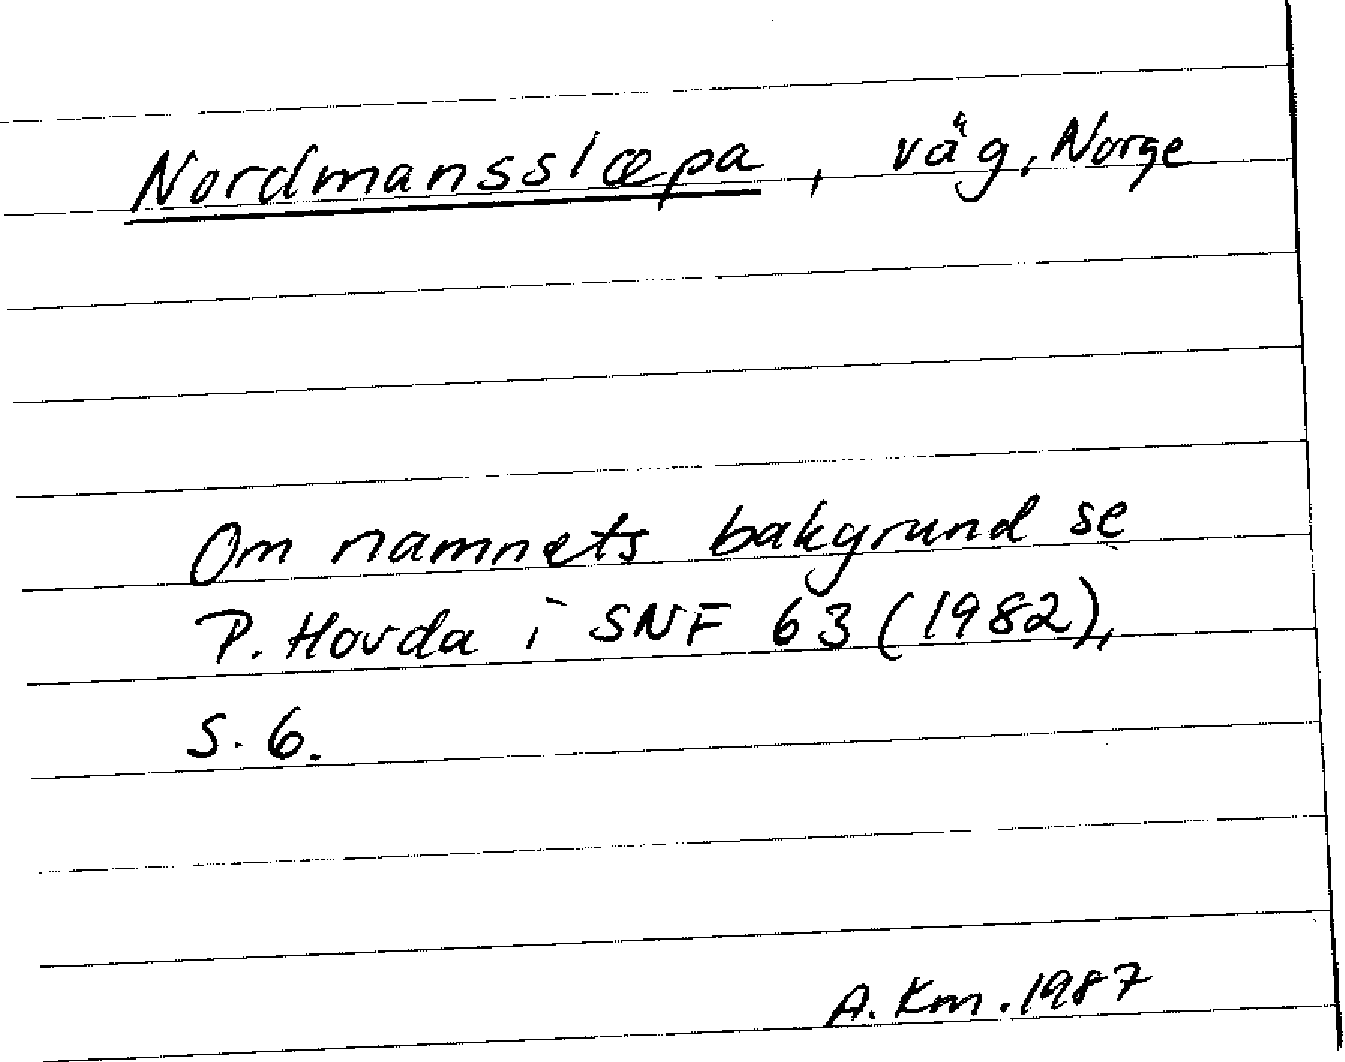 Nordmansslæpa, väg, Norge
Om namnets bakgrund se
P. Hovda i SNF 63 (1982),
S. 6.
A. Km. 1987